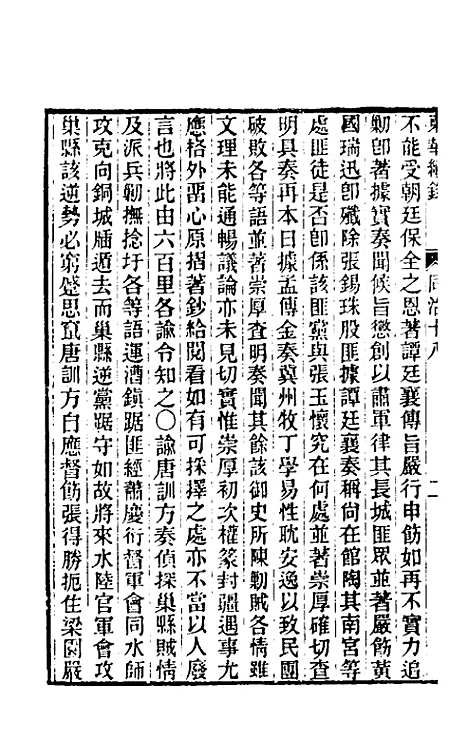 東華續錄 同治十八 二
不能受朝廷保全之恩著譚廷襄傳旨嚴行申飭如再不實力追
勦卽著據實奏聞候旨懲創以肅軍律其長城匪眾並著嚴飭黃
國瑞迅卽殲除張錫珠股匪據譚廷襄奏稱尙在館陶其南宮等
處匪徒是否卽係該匪黨與張玉懷究在何處並著崇厚確切查
明具奏再本日據孟傳金奏冀州牧丁學易性耽安逸以致民團
破敗各等語並著崇厚查明奏聞其餘該御史所陳勦賊各情雖
文理未能通暢議論亦未見切實惟崇厚初次權篆封疆遇事尤
應格外留心原摺著鈔給閱看如有可採擇之處亦不當以人廢
言也將此由六百里各諭令知之〇諭唐訓方奏偵探巢縣賊情
及派兵勦撫捻圩各等語運漕鎮踞匪經蕭慶衍督軍會同水師
攻克向銅城牐遁去而巢縣逆黨踞守如故將來水陸官軍會攻
巢縣該逆勢必窮蹙思竄唐訓方自應督飭張得勝扼住梁園嚴